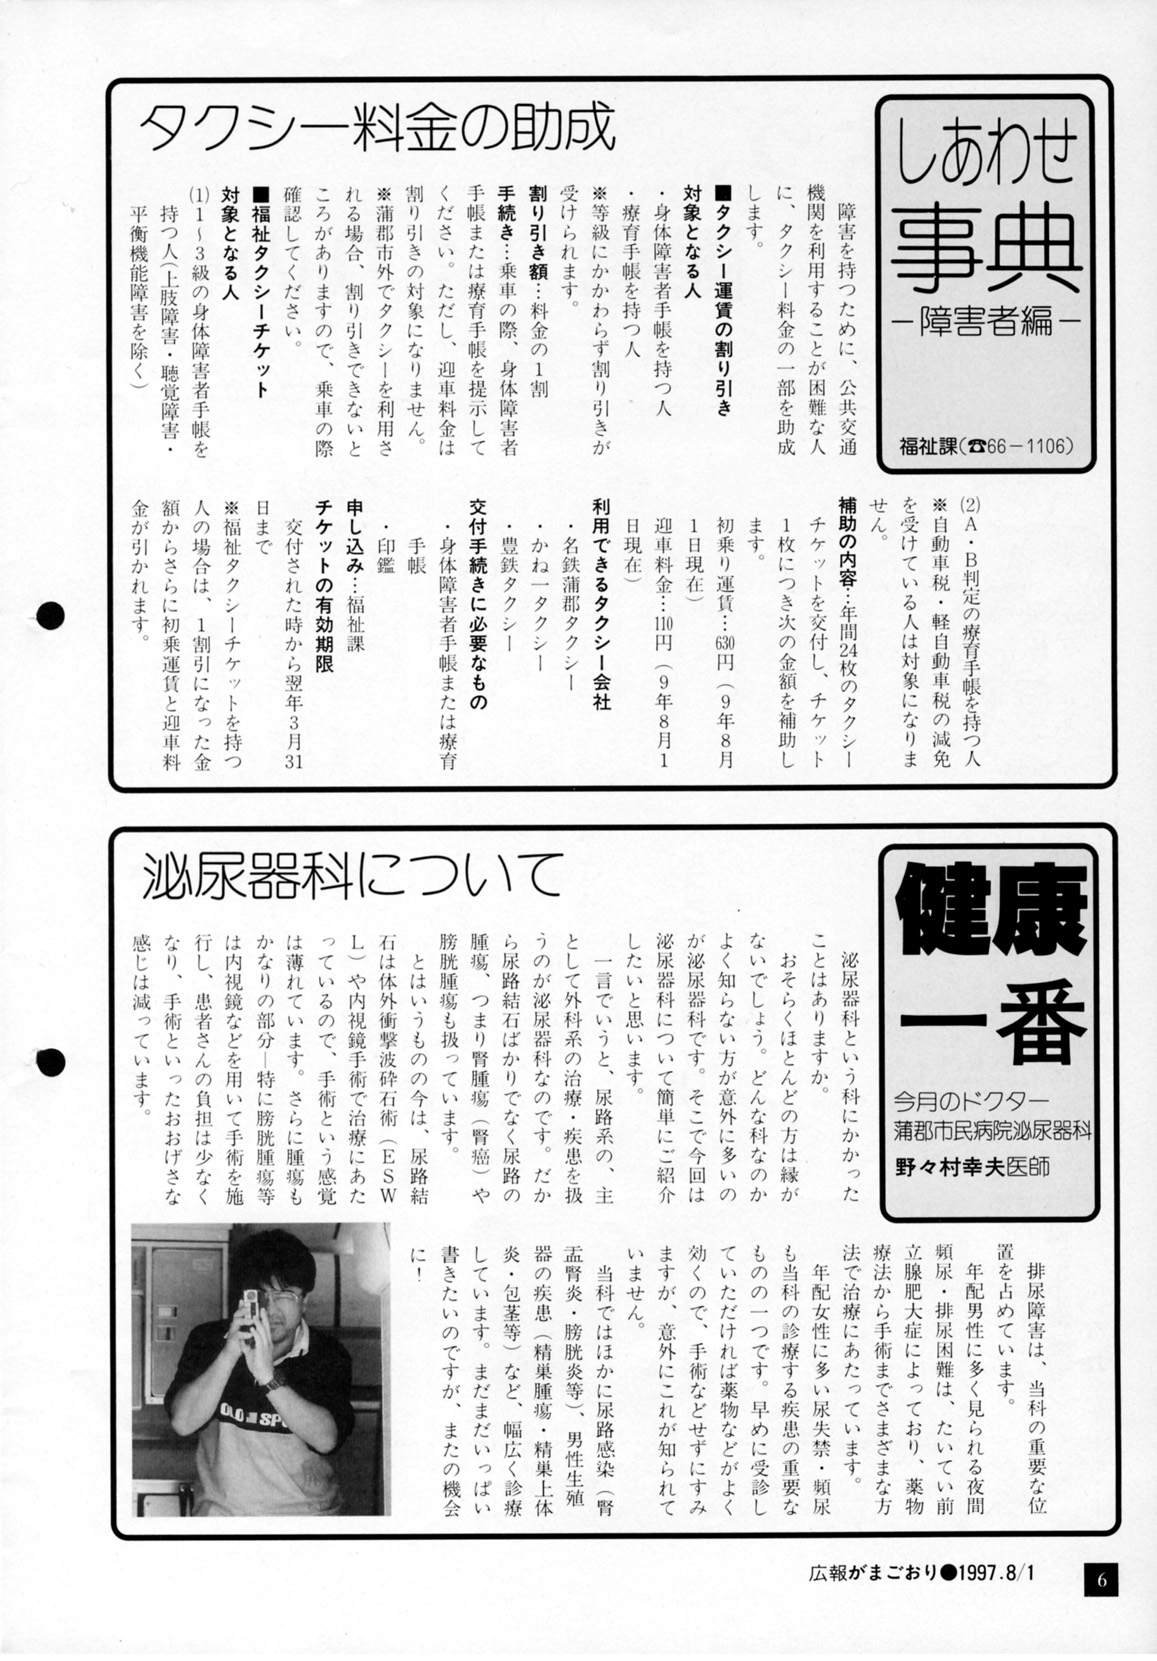 しあわせ
事典
－障害者編－
福祉課(☎66－1106)
タクシー料金の助成
障害を持つために、公共交通
機関を利用することが困難な人
に、タクシー料金の一部を助成
します。
■タクシー運賃の割り引き
対象となる人
・身体障害者手帳を持つ人
・療育手帳を持つ人
※等級にかかわらず割り引きが
受けられます。
割り引き額…料金の1割
手続き…乗車の際、身体障害者
手帳または療育手帳を提示して
ください。ただし、迎車料金は
割り引きの対象になりません。
※蒲郡市外でタクシーを利用さ
れる場合、割り引きできないと
ころがありますので、乗車の際
確認してください。
■福祉タクシーチケット
対象となる人
(1)1～3級の身体障害者手帳を
持つ人(上肢障害・聴覚障害・
平衡機能障害を除く)
(2)A・B判定の療育手帳を持つ人
※自動車税・軽自動車税の減免
を受けている人は対象になりま
せん。
補助の内容…年間24枚のタクシー
チケットを交付し、チケット
1枚につき次の金額を補助し
ます。
初乗り運賃…630円(9年8月
1日現在)
迎車料金…110円(9年8月1
日現在)
利用できるタクシー会社
・名鉄蒲郡タクシー
・かね一タクシー
・豊鉄タクシー
交付手続きに必要なもの
・身体障害者手帳または療育
手帳
・印鑑
申し込み…福祉課
チケットの有効期限
交付された時から翌年3月31
日まで
※福祉タクシーチケットを持つ
人の場合は、1割引になった金
額からさらに初乗運賃と迎車料
金が引かれます。
健康
一番
今月のドクター
蒲郡市民病院泌尿器科
野々村幸夫医師
泌尿器科について
泌尿器科という科にかかった
ことはありますか。
おそらくほとんどの方は縁が
ないでしょう。どんな科なのか
よく知らない方が意外に多いの
が泌尿器科です。そこで今回は
泌尿器科について簡単にご紹介
したいと思います。
一言でいうと、尿路系の、主
として外科系の治療・疾患を扱
うのが泌尿器科なのです。だか
ら尿路結石ばかりでなく尿路の
腫瘍、つまり腎腫瘍(腎癌)や
膀胱腫瘍も扱っています。
とはいうものの今は、尿路結
石は体外衝撃波砕石術(ESW
L)や内視鏡手術で治療にあた
っているので、手術という感覚
は薄れています。さらに腫瘍も
かなりの部分―特に膀胱腫瘍等
は内視鏡などを用いて手術を施
行し、患者さんの負担は少なく
なり、手術といったおおげさな
感じは減っています。
排尿障害は、当科の重要な位
置を占めています。
年配男性に多く見られる夜間
頻尿・排尿困難は、たいてい前
立腺肥大症によっており、薬物
療法から手術までさまざまな方
法で治療にあたっています。
年配女性に多い尿失禁・頻尿
も当科の診療する疾患の重要な
ものの一つです。早めに受診し
ていただければ薬物などがよく
効くので、手術などせずにすみ
ますが、意外にこれが知られて
いません。
当科ではほかに尿路感染(腎
盂腎炎・膀胱炎等)、男性生殖
器の疾患(精巣腫瘍・精巣上体
炎・包茎等)など、幅広く診療
しています。まだまだいっぱい
書きたいのですが、またの機会
に!
広報がまごおり●1997.8/1
6